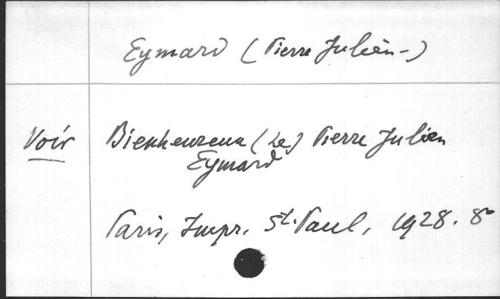 Eymard (Pierre Julien-)
Voir Bienheureux (Le) Pierre Julien
Eymard
Paris, Impr. St. Paul, 1928. 8º